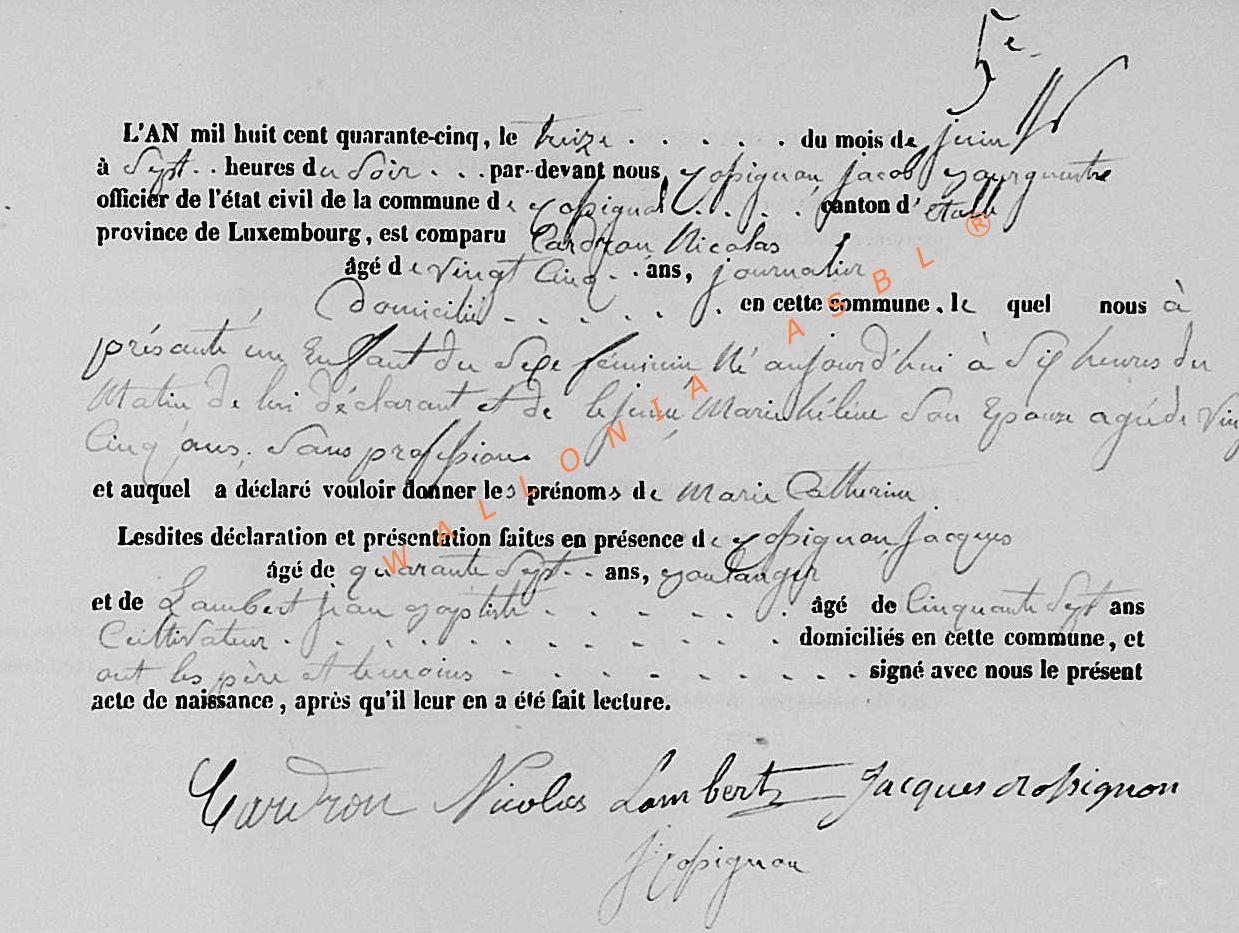 5e
L'AN mil huit cent quarante-cinq, le treize . . . . . du mois de juin
à Sept . . heures du Soir . . . par-devant nous, rossignon Jacob Bourguemtre
officier de l'état civil de la commune de rossignol . . . . canton d'étalle
province de Luxembourg, est comparu Cardron Nicolas
âgé de vingt Cinq . . ans, journalier
Domicilié . . . . . . en cette commune, le quel nous à
présanté un Enfant du Sexe féminin Né aujourd'hui à Six heures du
Matin de lui déclarant et de Marie hélène Son Epouze agée de Vin
Cinq ans, Sans profession
et auquel a déclaré vouloir donner les prénoms de Marie Catherine
Lesdites déclaration et présentation faites en présence de rossignon Jacques
âgé de quarante Sept . . ans, Boulanger
et de Lambert jean Baptiste . . . . . . âgé de Cinquante Sept ans
Cultivateur . . . . . . . . . . . domiciliés en cette commune, et
ont les père et temoins . . . . . . . . . . signé avec nous le présent
acte de naissance, après qu'il leur en a été fait lecture.
Cardron Nicolas Lambert Jacques rossignon
J rossignon
WALLONIA ASBL ®